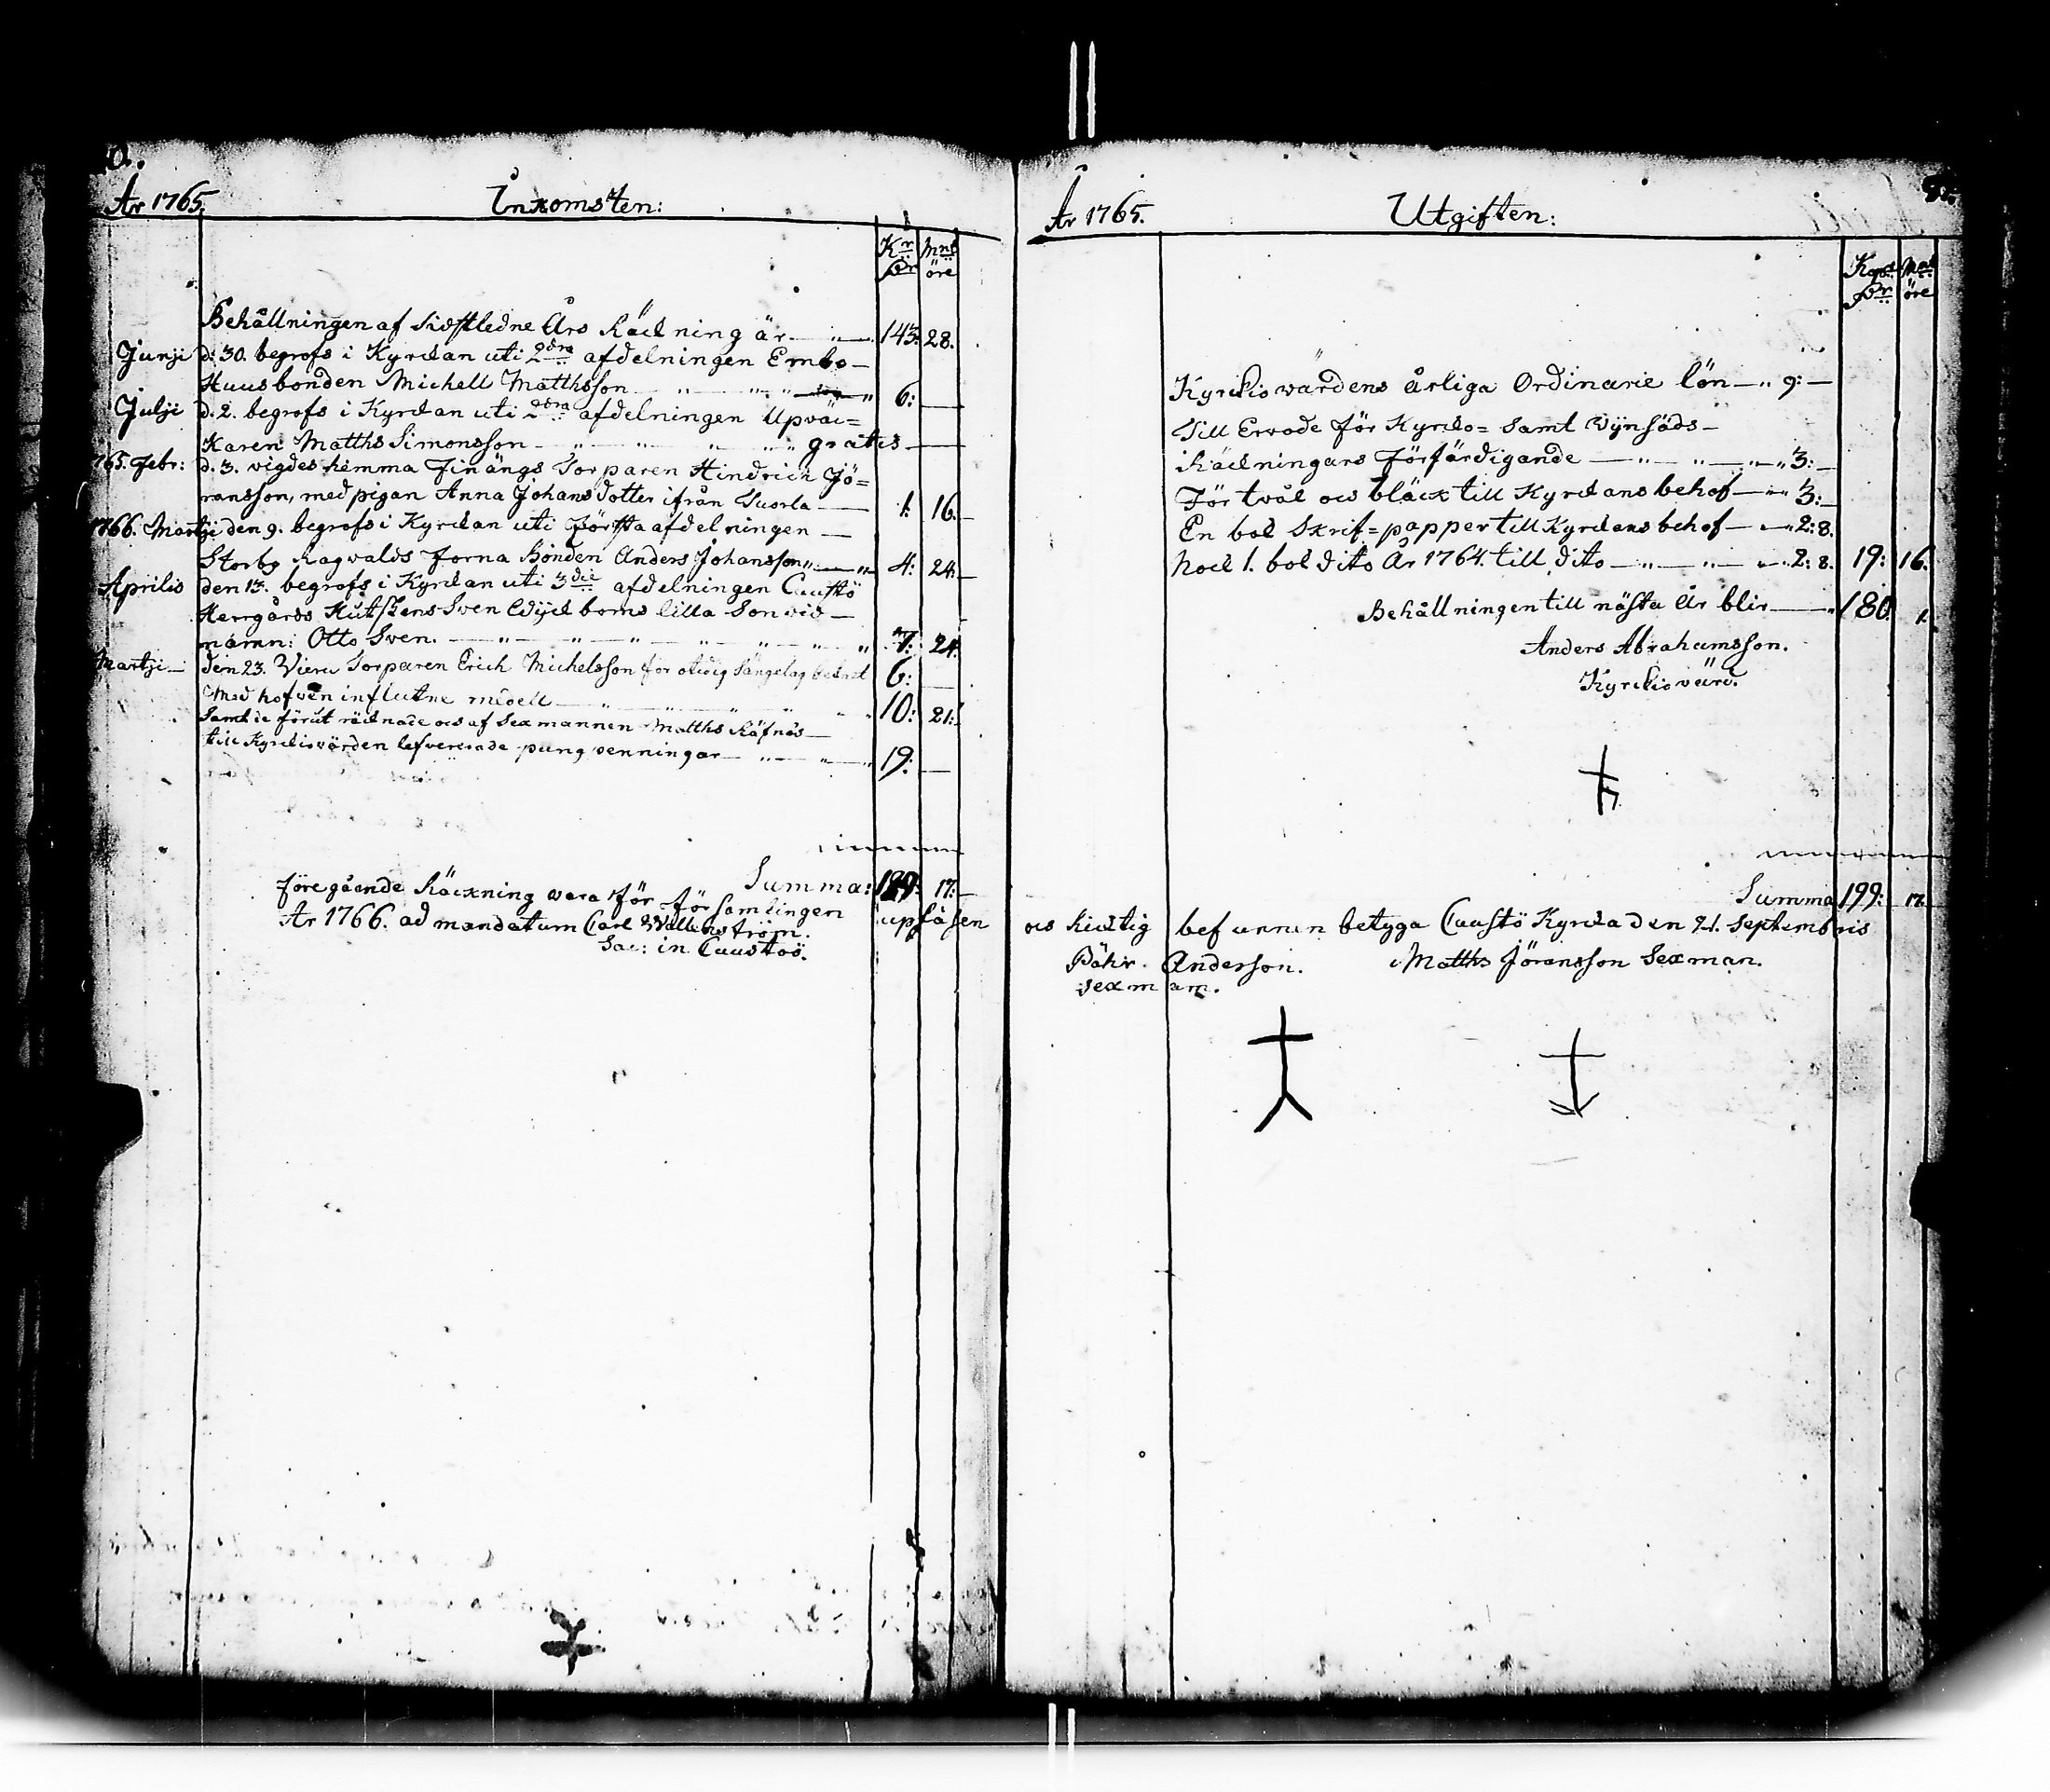 År 1765.
Inkomsten:
Kr Mnt
Dr öre
Behållningen af Sidstledne Års Räckning är 143: 28.
Junji d: 30. begrofs i Kyrckan uti 2dra afdelningen Embo-
Huusbonden Michell Matthsson 6: —
Julji d. 2. begrofs i Kyrckan uti 2dra afdelningen Upväc=
Karen Matths Simonsson gratis —
765. Febr: d. 3. vigdes hemma Finängs Torparen Hindrich Jö=
ransson, med pigan Anna Johansdotter ifrån 1: 16.
1766. Martji den 9. begrofs i Kyrckan uti Första afdelningen —
Storby Ragvalds Forna Bonden Anders Johansson 4: 24:
Aprilis den 13. begrofs i Kyrckan uti 3die afdelningen Cuustö
Herrgårds Kutskens Sven lilla Son vid —
namn: Otto Sven. 7: 24.
Martji den 23. Torparen Erich Michelsson för otidig Sängelag 6: —
Med hofven influtne medell 10: 21:
Samt de förut räcknade och af Sexmannen Matths Räfnäs —
till Kyrckiovärden lefvererade pung penningar 19: —
Summa: 199: 17:
Föregående Räckning vara för församlingen upläsen
År 1766. ad mandatum Carl Wallenström.
Sac: in Cuustoö.
År 1765.
Utgiften:
Kopr Mnt
Dr öre
Kyrckio wärdens årliga Ordinarie lön 9: —
Till Ervode för Kyrcko= samt Vijnsäds —
Räckningars Förfärdigande 3: —
För tvål och bläck till Kyrckans behof 3: —
En bok Skrif=papper till Kyrckans behof 2: 8.
Nock 1. bok dito År 1764. till dito 2: 8. 19: 16.
Behållningen till nästa År blir 180: 1.
Anders Abrahamsson.
Kyrckiovärd.
Summa 199: 17.
och Ricktig befunnen betyga Cuustö Kyrcka den 21. Septembris
Anderson. Matths Jöransson Sexman.
Sexman.